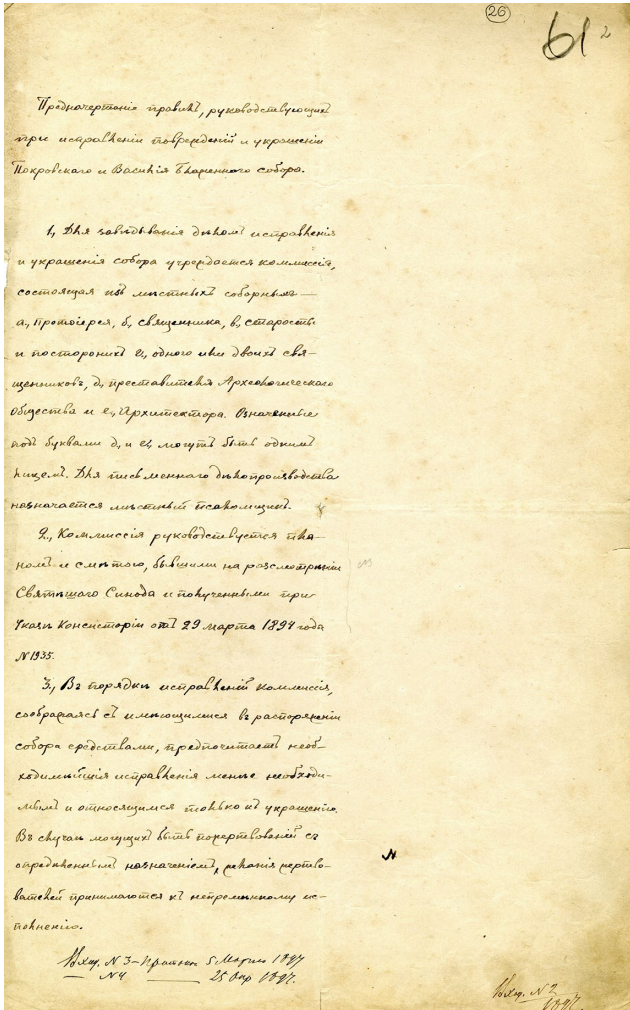 26
61 2
Предначертаніе правилъ, руководствующихъ
при исправленіи поврежденій и украшеніи
Покровскаго и Василія Блаженнаго собора.
1, Для завѣдыванія дѣломъ исправленія
и украшенія собора учреждается коммиссія,
состоящая изъ мѣстныхъ соборныхъ —
а, протоіерея, б, священника, в, старосты
и постороннихъ г, одного или двоихъ свя-
щенниковъ, д, преставителя Археологическаго
Общества и е, Архитектора. Означенные
подъ буквами д, и е, могутъ быть однимъ
лицемъ. Для письменнаго дѣлопроизводства
назначается мѣстный псаломщикъ.
2, Коммиссія руководствуется пла-
номъ и смѣтою, бывшими на разсмотрѣніи
Святѣйшаго Синода и полученными при
Указѣ Консисторіи отъ 29 марта 1894 года
N 1935.
3, Въ порядкѣ исправленій коммиссія,
сообразуясь съ имѣющимися въ распоряженіи
собора средствами, предпочитаетъ необ-
ходимѣйшія исправленія менѣе необходи-
мымъ и относящимся только къ украшенію.
Въ случаѣ могущихъ быть пожертвованій съ
опредѣленнымъ назначеніемъ, желанія жертво-
вателей принимаются къ непремѣнному ис-
полненію.
Вход. N 3 - 5 Марта 1897
N 4 — 25 Апр 1897.
Вход. N 2
1897.